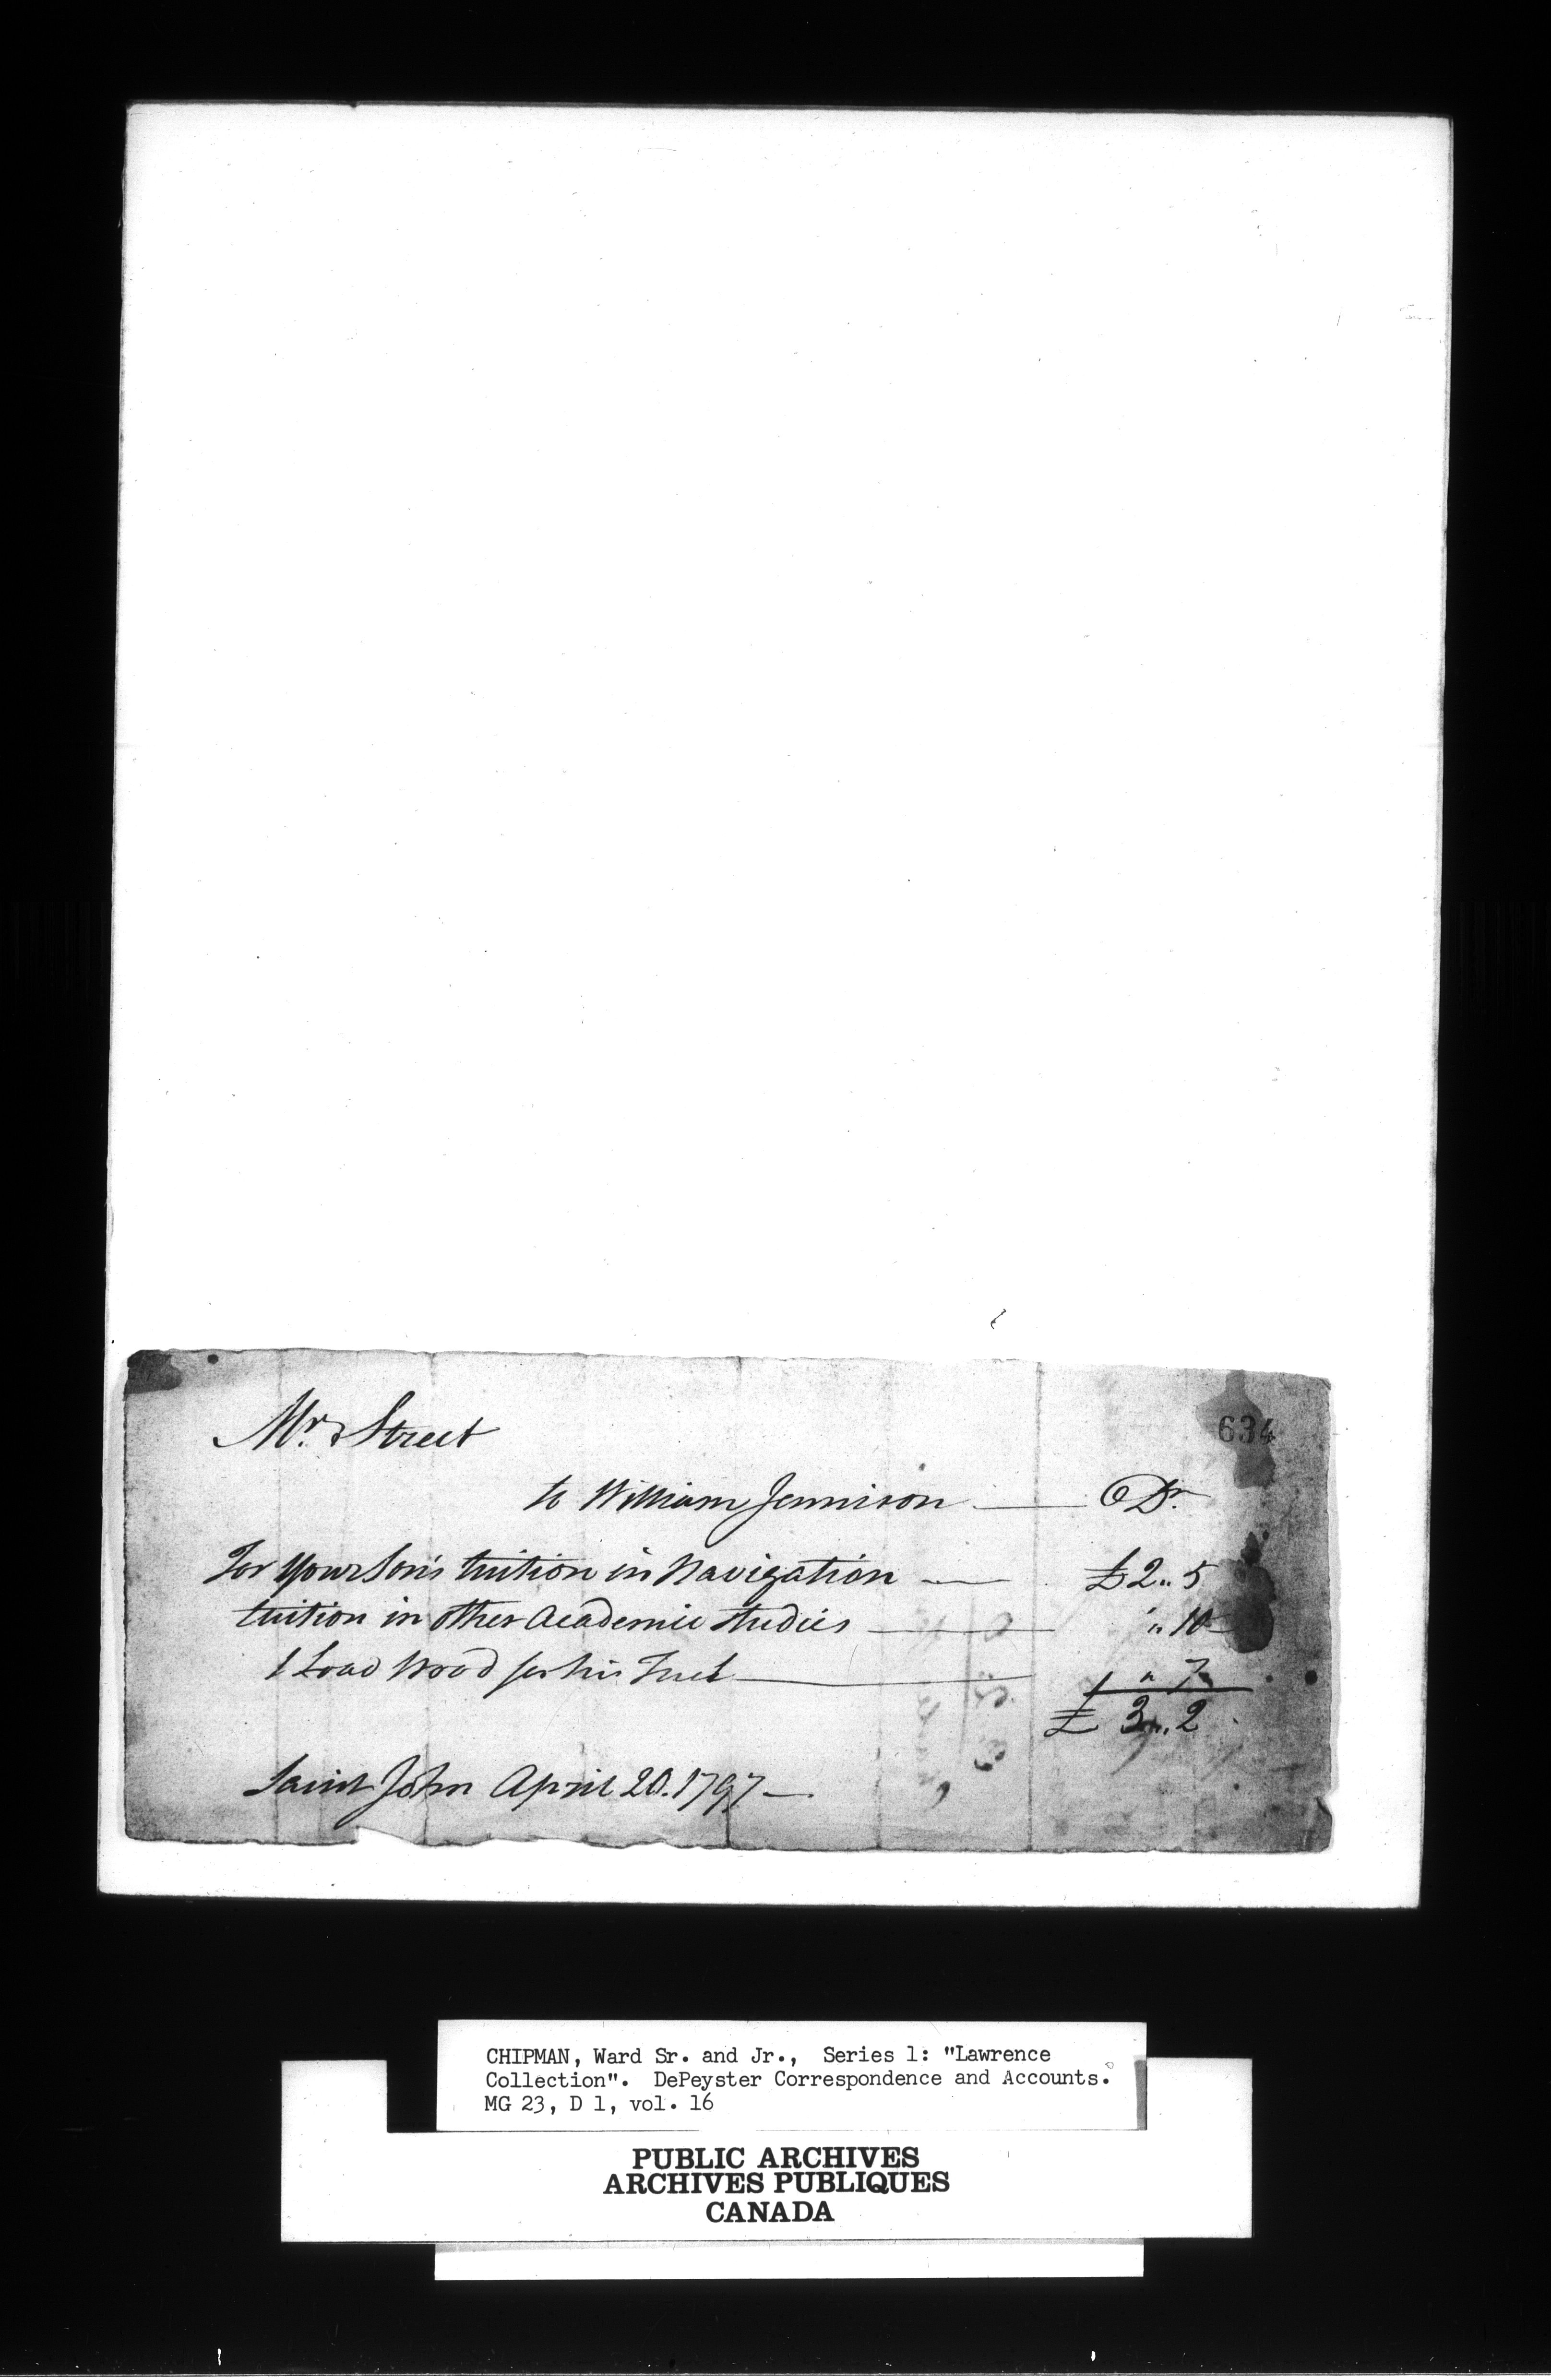 634
Mr. Street
to William Jennison —— Dr.
For your Son's tuition in Navigation —— £2 „ 5
tuition in other Academic studies —— „ 10
1 Load Wood for his Fuel —— „ 7
£ 3 „ 2
Saint John April 20. 1797 —
CHIPMAN, Ward Sr. and Jr., Series 1: "Lawrence
Collection". DePeyster Correspondence and Accounts.
MG 23, D 1, vol. 16
PUBLIC ARCHIVES
ARCHIVES PUBLIQUES
CANADA